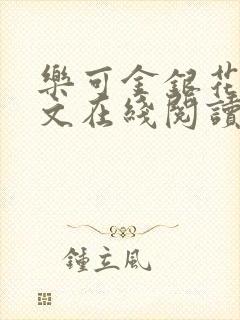 樂可金銀花
文在綫閱讀
鍾立風